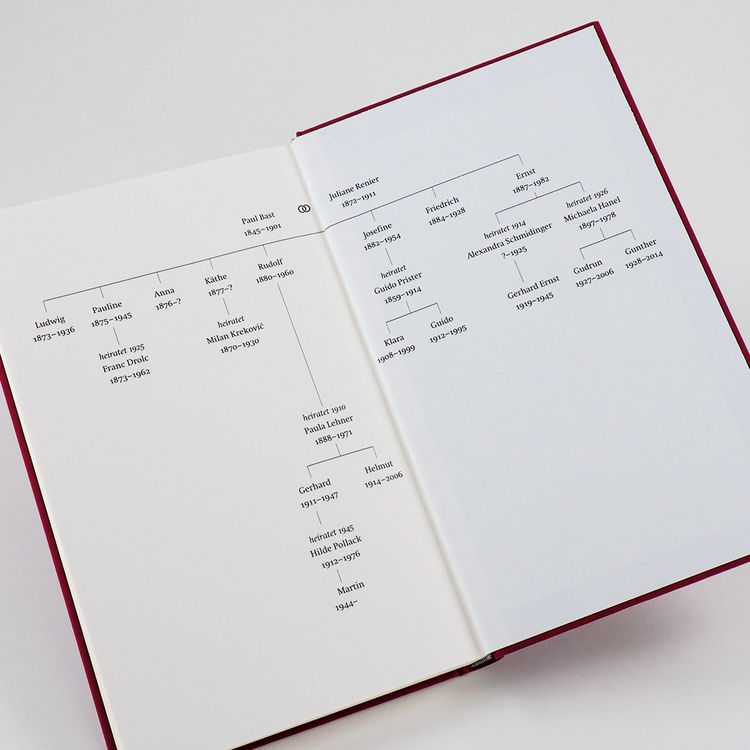 Paul Bast
1845–1901
Juliane Renier
1872–1911
Ludwig
1873–1936
Pauline
1875–1945
heiratet 1925
Franc Drolc
1873–1962
Anna
1876–?
Käthe
1877–?
heiratet
Milan Kreković
1870–1930
Rudolf
1880–1960
heiratet 1910
Paula Lehner
1888–1971
Gerhard
1911–1947
heiratet 1945
Hilde Pollack
1912–1976
Martin
1944–
Helmut
1914–2006
Josefine
1882–1954
heiratet
Guido Prister
1859–1914
Klara
1908–1999
Guido
1912–1995
Friedrich
1884–1928
Ernst
1887–1982
heiratet 1914
Alexandra Schmidinger
?–1925
Gerhard Ernst
1919–1945
heiratet 1926
Michaela Hanel
1897–1978
Gudrun
1927–2006
Gunther
1928–2014